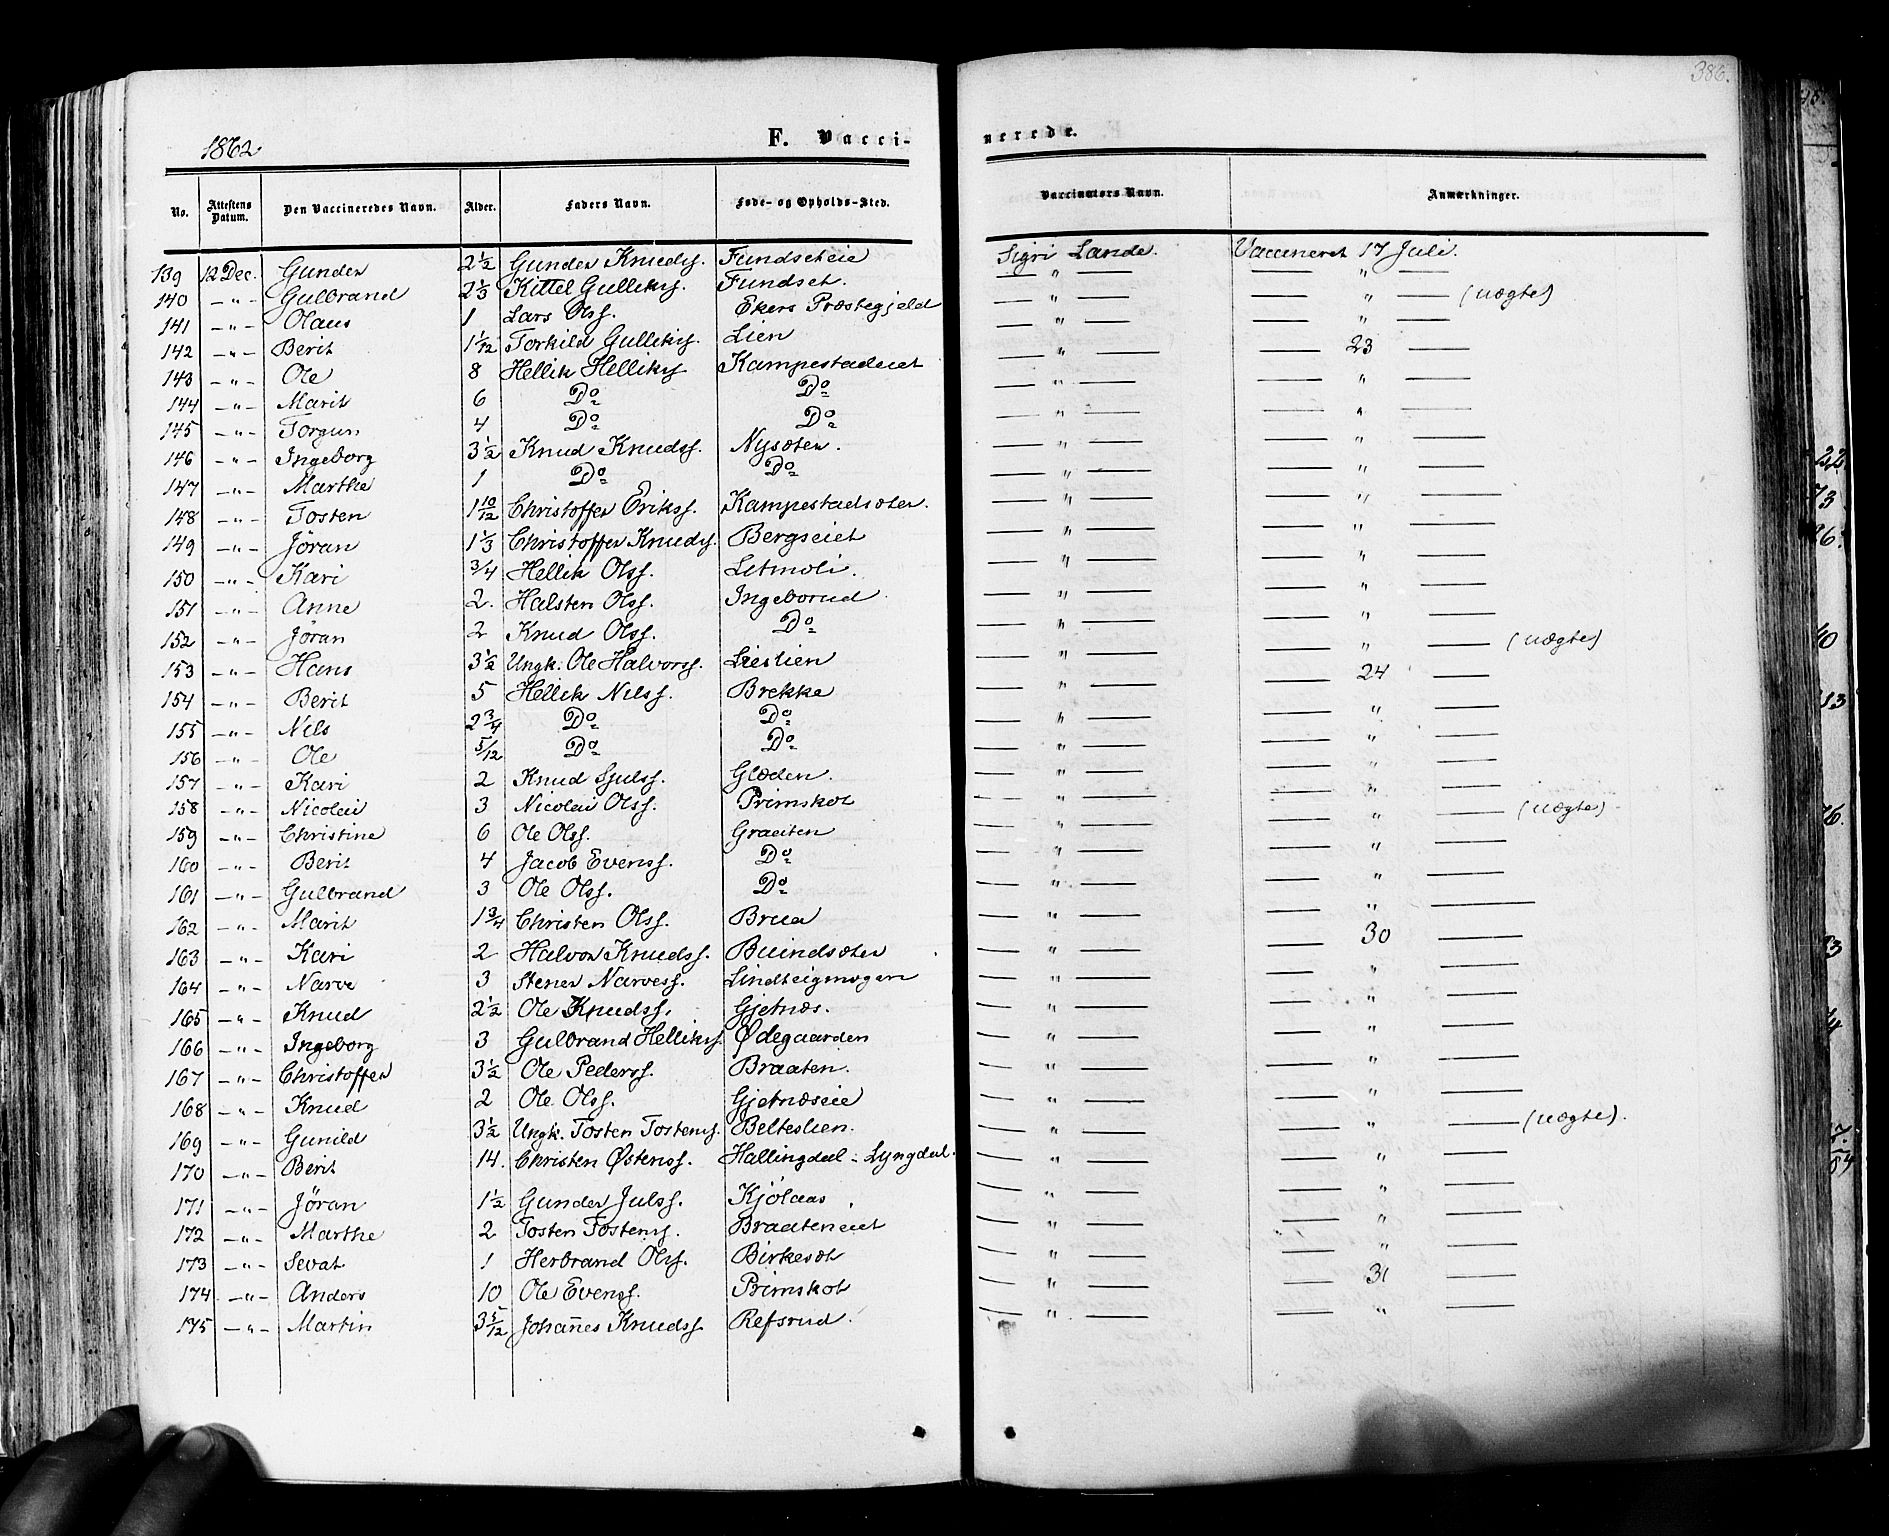 386.
1862 F. Vacci- nerede.
No. Attestens Datum. Den Vaccineredes Navn. Alder. Faders Navn. Føde- og Opholds-Sted. Vaccinators Navn. Anmærkninger.
139 12 Dec. Gunder 2½ Gunder Knuds. Fundseteie Sigri Lande. Vaccineret 17 Juli.
140 -"- Gulbrand 2⅓ Kittel Gulliks. Fundset. — " — — " —
141 -"- Olaus 1 Lars Ols. Ekers Præstegjeld — " — — " — (uægte)
142 -"- Berit 1 1/12 Torkild Gulliks. Lien — " — — " —
143 -"- Ole 8 Hellik Helliks Kampestadeiet — " — — 23 —
144 -"- Marit 6 Do Do — " — — " —
145 -"- Torgun 4 Do Do — " — — " —
146 -"- Ingeborg 3½ Knud Knudss. Nysæter. — " — — " —
147 -"- Marthe 1 Do Do — " — — " —
148 -"- Tosten 1 10/12 Christoffer Eriks. Kampestadsæter. — " — — " —
149 -"- Jøran 1⅓ Christoffer Knuds. Bergseiet — " — — " —
150 -"- Kari 3/4 Hellik Olss. Letmoli. — " — — " —
151 -"- Anne 2. Halsten Olss. Ingeborud. — " — — " —
152 -"- Jøran 2 Knud Olss. Do — " — — " —
153 -"- Hans 3½ Ungk. Ole Halvorss. Lieslien — " — — " — (uægte)
154 -"- Berit 5 Hellik Nilss. Brekke — " — — 24 —
155 -"- Nels 2¾ Do Do — " — — " —
156 -"- Ole 5/12 Do Do — " — — " —
157 -"- Kari 2 Knud Sjulss. Glæden. — " — — " —
158 -"- Nicolai 3 Nicolai Olss. Primskot — " — — " —
159 -"- Christine 6 Ole Olss. Graeiten — " — — " — (uægte)
160 -"- Berit 4 Jacob Evenss. Do — " — — " —
161 -"- Gulbrand 3 Ole Olss. Do — " — — " —
162 -"- Marit 1¾ Christen Olss. Brua — " — — " —
163 -"- Kari 2 Halvor Knudss. Buindsæter — " — — 30 —
164 -"- Narve 3 Stener Narvess. Lindteigmogen — " — — " —
165 -"- Knud 2½ Ole Knudss. Gjetnæs. — " — — " —
166 -"- Ingeborg 3 Gulbrand Helliks. Ødegaarden — " — — " —
167 -"- Christoffer 3½ Ole Pederss. Braaten. — " — — " —
168 -"- Knud 2 Ole Olss. Gjetnæseie — " — — " —
169 -"- Gunild 3½ Ungk. Tosten Tostens. Belteslien. — " — — " — (uægte).
170 -"- Berit 14. Christen Østenss. Hallingdal - Lyngdal. — " — — " —
171 -"- Jøran 1½ Gunder Julss. Kjölaas — " — — " —
172 -"- Marthe 2 Tosten Tostens. Braateneiet — " — — " —
173 -"- Sevat 1 Herbrand Olss. Birkesæt — " — — " —
174 -"- Anders 10 Ole Evenss. Primskot — " — — 31 —
175 -"- Martin 3 5/12 Johannes Knudss Refsrud. — " — — " —